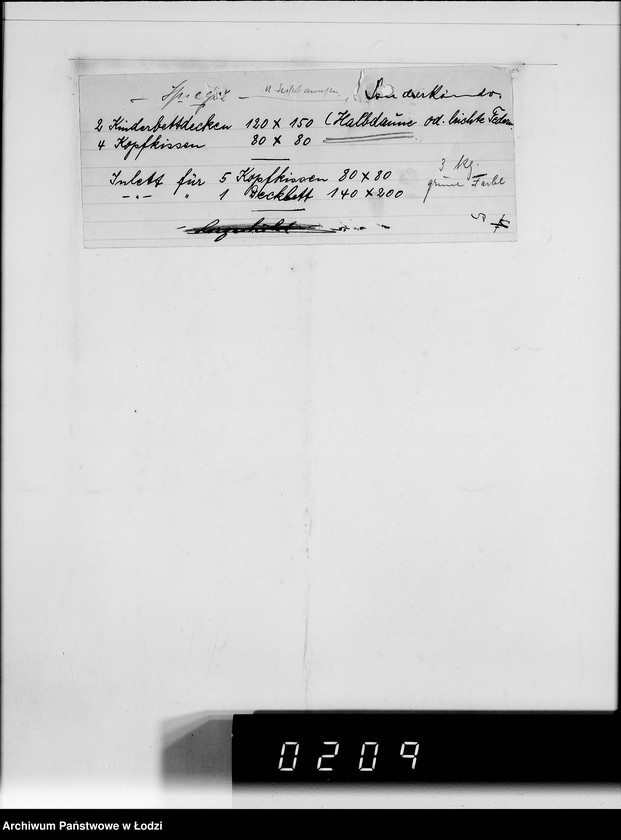 Sonderkomdo.
2 Kinderbettdecken 120 x 150 (Halbdaune od. leichte Federn
4 Kopfkissen 80 x 80
3 kg.
Inlett für 5 Kopfkissen 80 x 80
grüne Farbe
-"- " 1 Deckbett 140 x 200
0209
Archiwum Państwowe w Łodzi